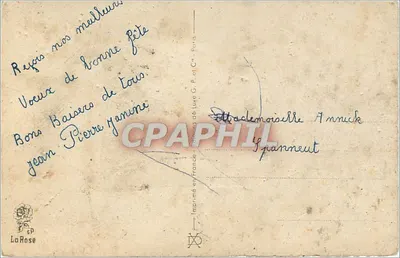 Reçois nos meilleurs
Vœux de bonne fête
Bons Baisers de tous.
Jean Pierre Janine
Mademoiselle Annick
Spanneut
CPAPHIL
EP
La Rose